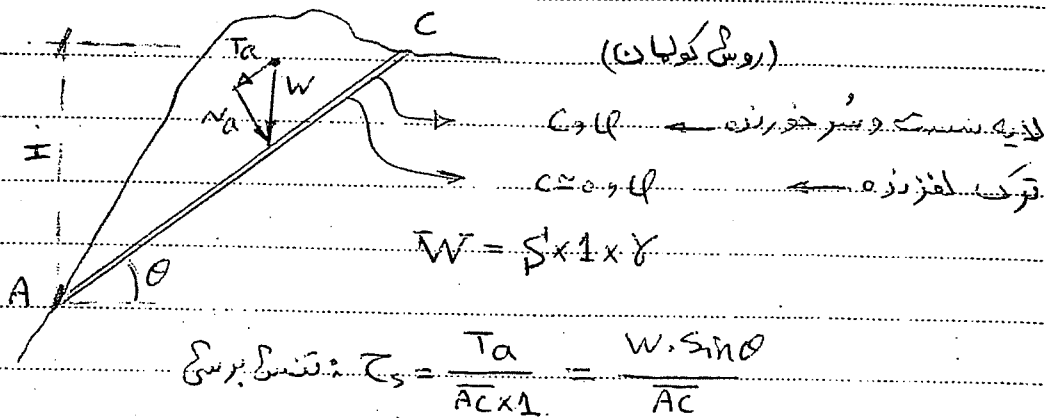 C
(روش کولمان)
Ta
W
Na
H
لایه سست و سُر خورنده ← C, φ
ترک لغزنده ← C≃0, φ
W = S×1×γ
A θ
تنش برشی : τs = Ta / (AC×1) = W.Sinθ / AC